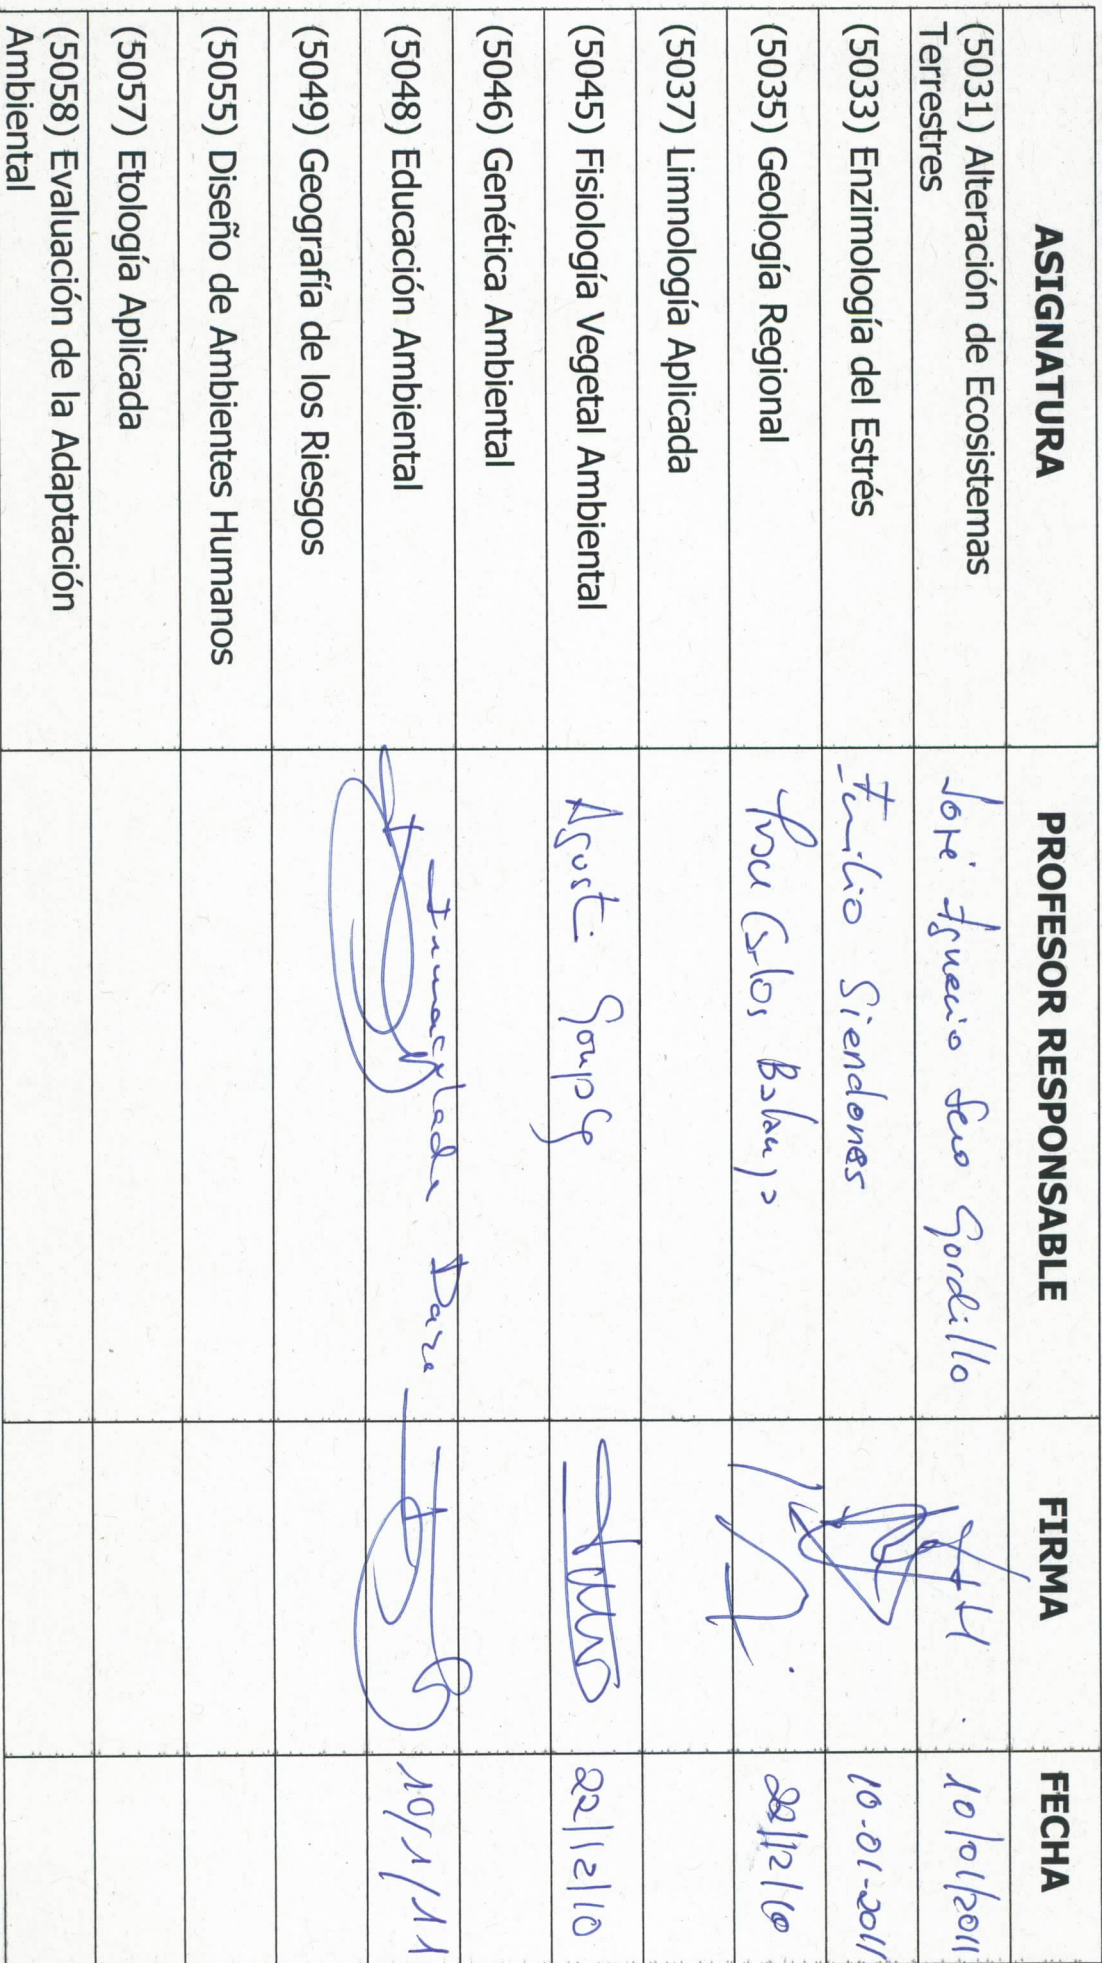 ASIGNATURA PROFESOR RESPONSABLE FIRMA FECHA
(5031) Alteración de Ecosistemas
Terrestres
José Ignacio Seco Gordillo 10/01/2011
(5033) Enzimología del Estrés Emilio Siendones 10-01-2011
(5035) Geología Regional Carlos 22/12/10
(5037) Limnología Aplicada
(5045) Fisiología Vegetal Ambiental Agustí 22/12/10
(5046) Genética Ambiental
(5048) Educación Ambiental Inmaculada 10/1/11
(5049) Geografía de los Riesgos
(5055) Diseño de Ambientes Humanos
(5057) Etología Aplicada
(5058) Evaluación de la Adaptación
Ambiental